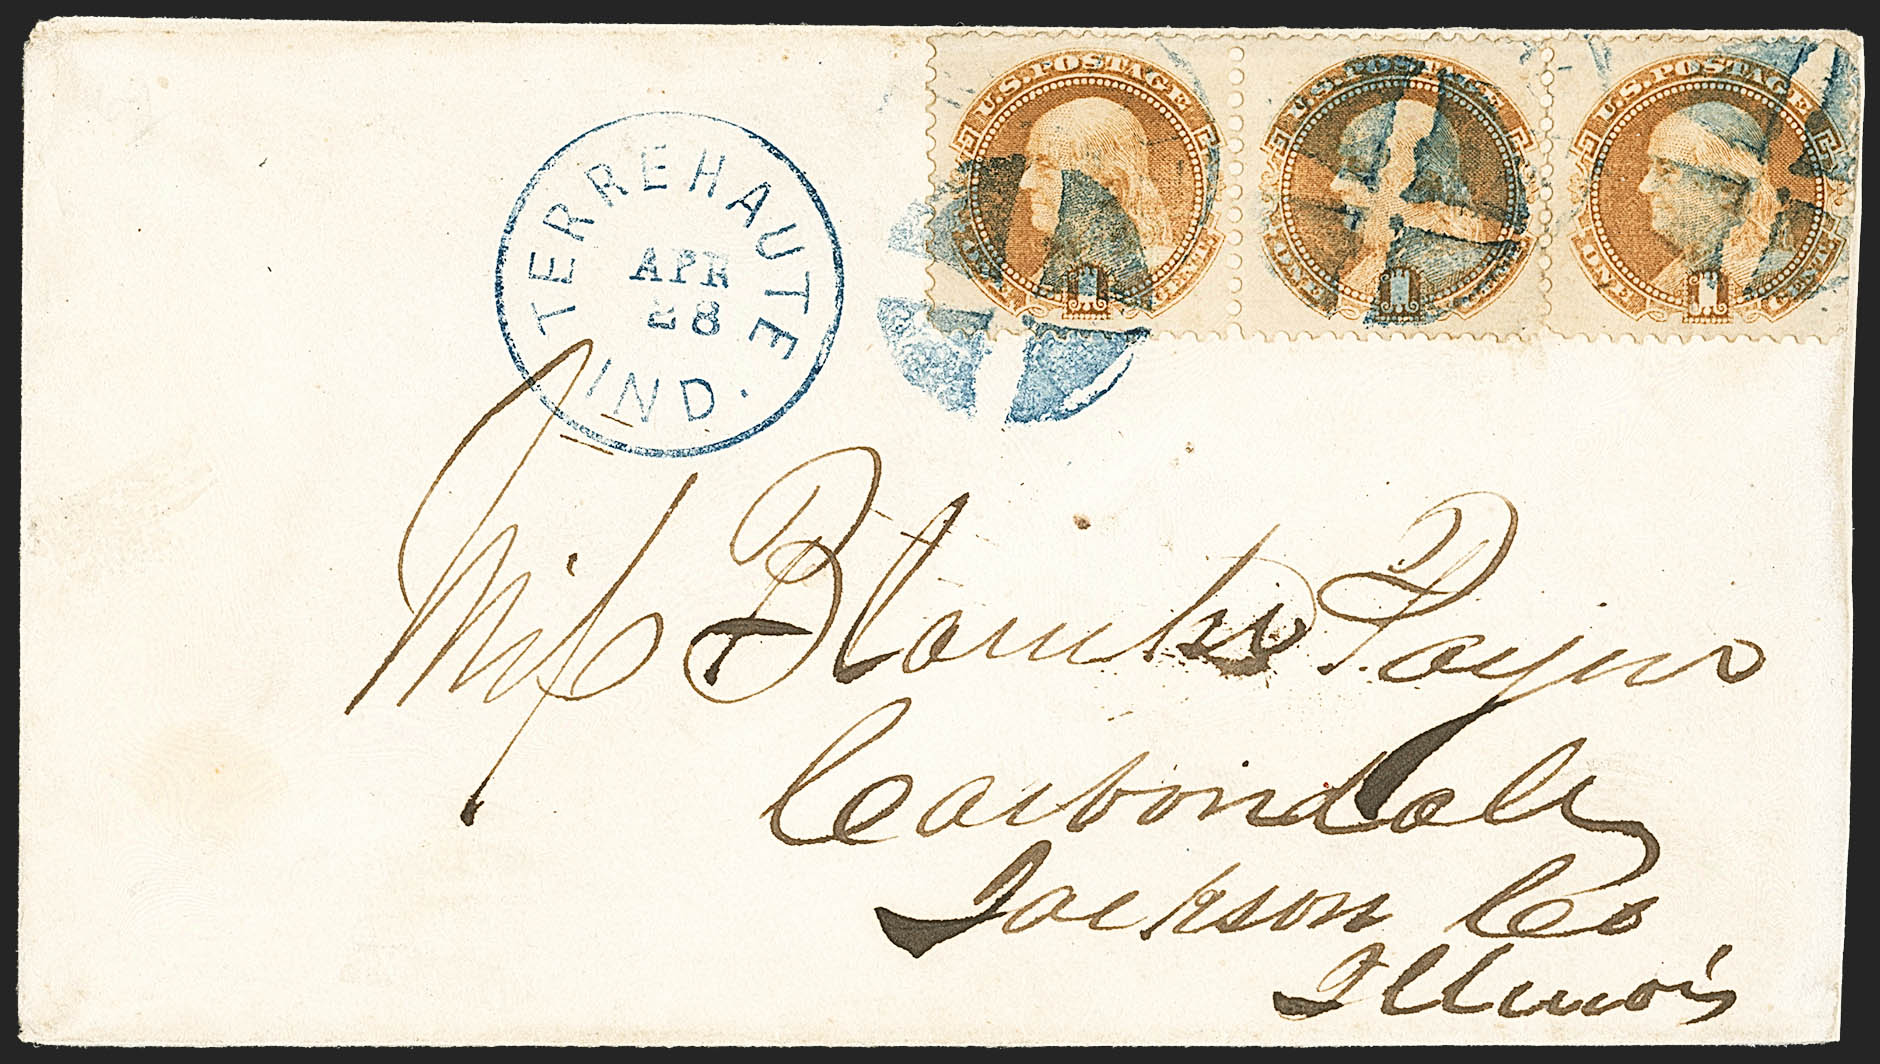 U.S. POSTAGE U.S. POSTAGE U.S. POSTAGE
ONE 1 CENT ONE 1 CENT ONE 1 CENT
TERRE HAUTE
APR
28
IND.
Miss Payne
Carbondale
Jackson Co
Illinois